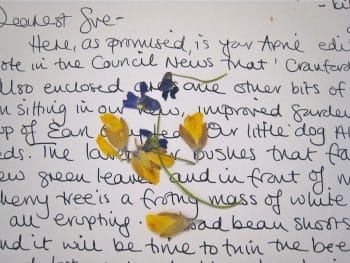 - bi
Dearest Sue-
Here, as promised, is your April edi
ote in the Council News that 'Cranford
Also enclosed one other bits of
m sitting in our new, improved garde
p of Earl Our little dog A
eds. The bushes that fa
ew green leaves and in front of m
herry tree is a frothy mass of white
all erupting. bean shoots
and it will be time to thin the bee